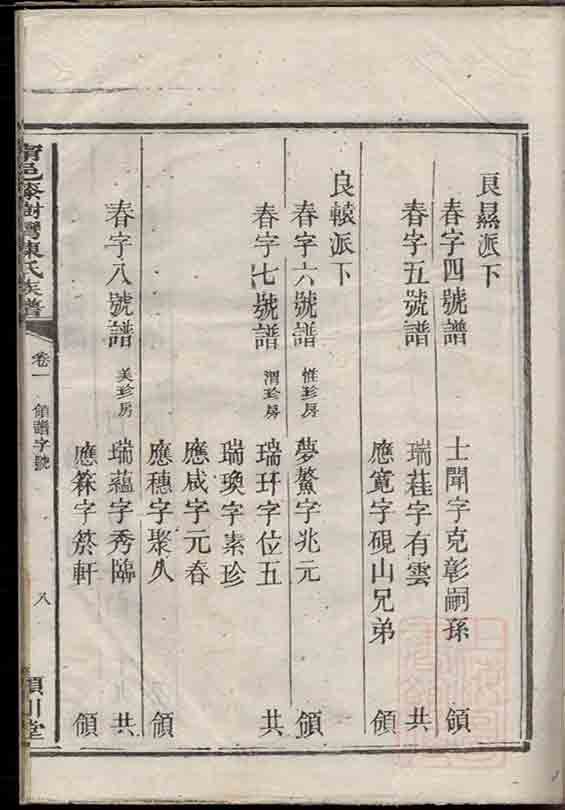 良㬎派下
春字四號譜 士聞字克彰嗣孫 領
春字五號譜 瑞蓕字有雲 共
應寬字硯山兄弟 領
良轅派下
春字六號譜 惟珍房 夢鰲字兆元 領
春字七號譜 渭珍房 瑞玕字位五 共
瑞瑍字素珍
應咸字元春
應穗字聚久 領
春字八號譜 美珍房 瑞蘊字秀臨 共
應箖字棻軒 領
甯邑 樹灣陳氏族譜 卷一 領譜字號 八 潁川堂